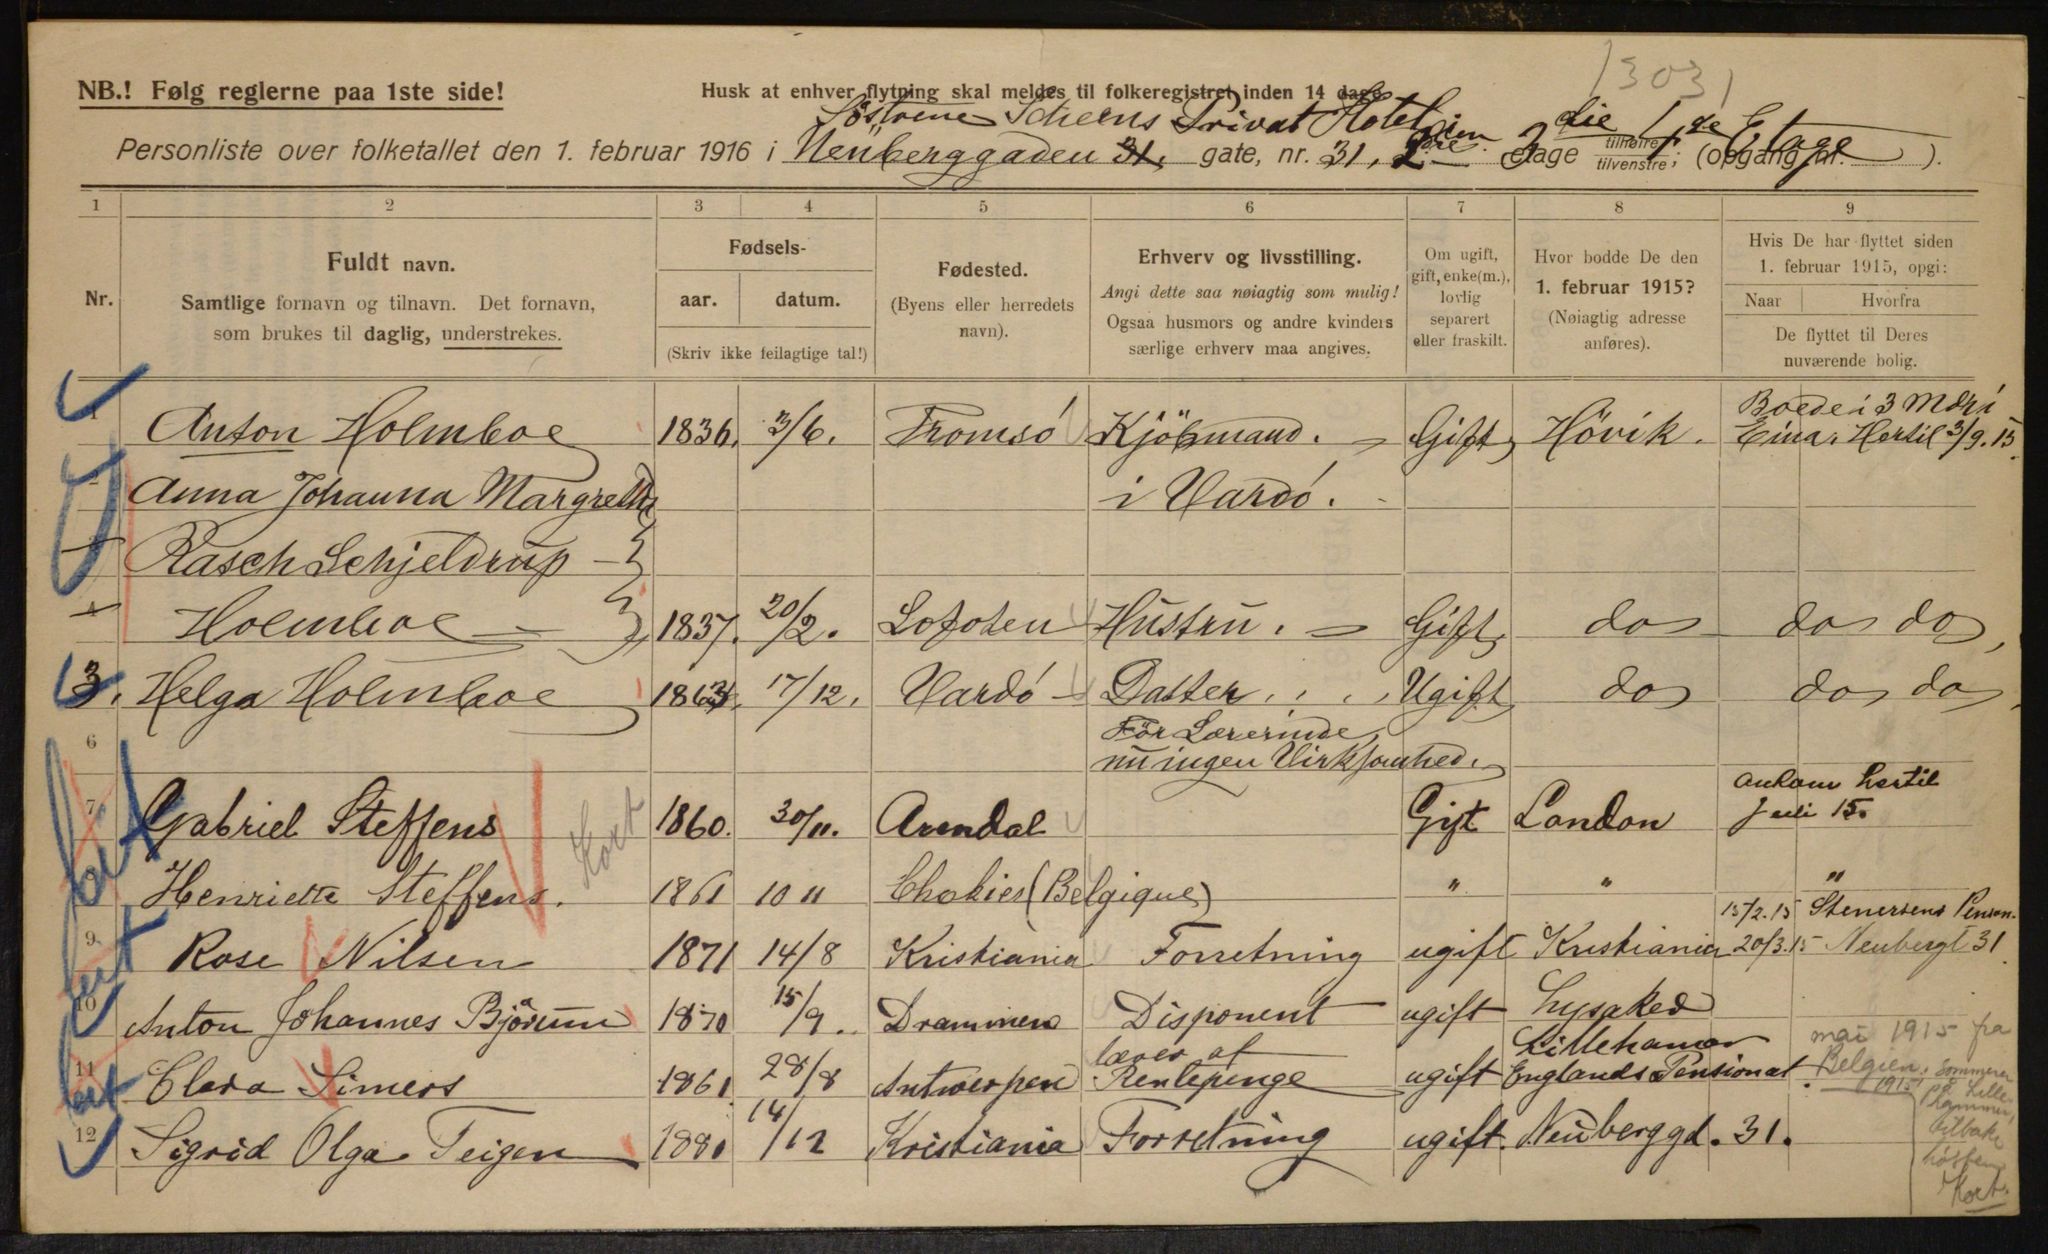 13031
NB.! Følg reglerne paa 1ste side!
Husk at enhver flytning skal meldes til folkeregistret inden 14 dage.
Söstrene Scheens Privat Hotel
Personliste over folketallet den 1. februar 1916 i Neuberggaden 31, gate, nr. 31, 2den 3die etage tilhøire tilvenstre; (opgang nr. ).
1de Etage
1 2 3 4 5 6 7 8 9
Nr.
Fuldt navn.
Samtlige fornavn og tilnavn. Det fornavn,
som brukes til daglig, understrekes.
Fødsels-
aar. datum.
(Skriv ikke feilagtige tal!)
Fødested.
(Byens eller herredets
navn).
Erhverv og livsstilling.
Angi dette saa nøiagtig som mulig!
Ogsaa husmors og andre kvinders
særlige erhverv maa angives.
Om ugift,
gift, enke(m.),
lovlig
separert
eller fraskilt.
Hvor bodde De den
1. februar 1915?
(Nøiagtig adresse
anføres).
Hvis De har flyttet siden
1. februar 1915, opgi:
Naar Hvorfra
De flyttet til Deres
nuværende bolig.
1 Anton Holmboe 1836. 3/6. Tromsö Kjöbmand. Gift Hövik. Boede i 3 Mdr i
Hertil 3/9.15.
Anna Johanna Margrethe i Vardö.
Rasch Schjeldrup
4 Holmboe 1837. 20/2. Lofoten Hustru. Gift do do do
3. Helga Holmboe 1863. 17/12. Vardö Datter. Ugift do do do
6 För Lærerinde
nu ingen Virksomhed.
7 Gabriel Steffens 1860. 30/11. Arendal Gift London Ankom hertil
Juli 15.
Kort
Henriette Steffens. 1861 10 11 Chokier (Belgique) " " "
15/2.15 Stenersens Pension.
9 Rose Nilsen 1871 14/8 Kristiania Forretning ugift Kristiania 20/3.15 Neubergt 31
10 Anton Johannes Bjørum 1870 15/9. Drammen Disponent ugift Lysaker
11 Clara Simers 1861 28/8 Antwerpen lever af Rentepenge ugift Lillehamar
Englands Pensionat.
mai 1915 fra
Belgien. Sommeren
1915 på Lille-
hammer,
tilbake
høsten
Kort.
12 Sigrid Olga Teigen 1880 14/12 Kristiania Forretning ugift. Neuberggd. 31.